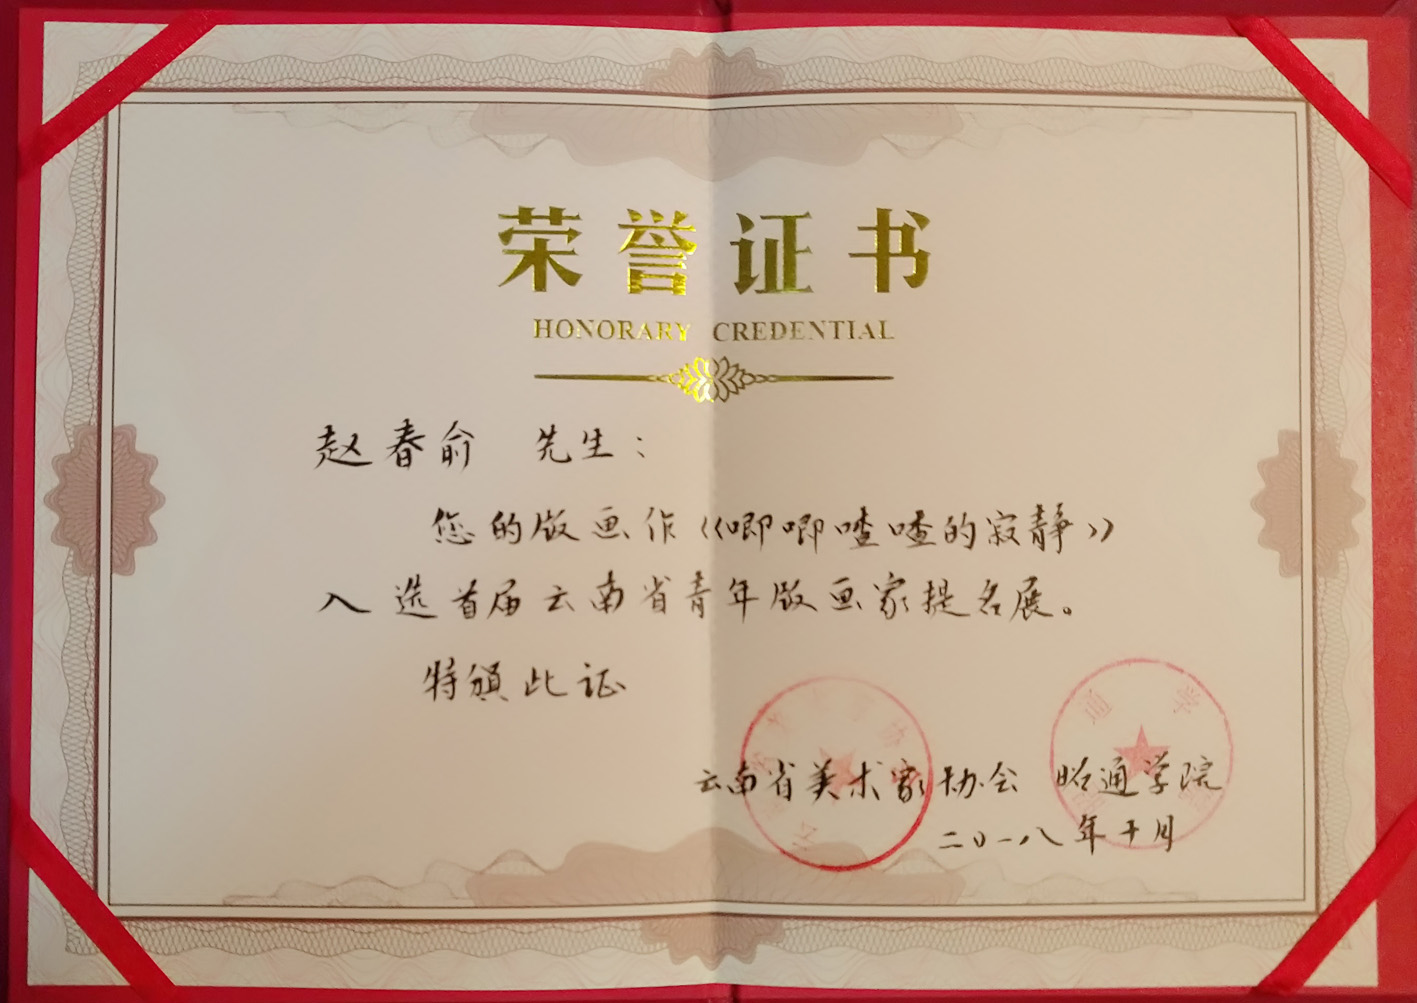 荣誉证书
HONORARY CREDENTIAL
赵春俞 先生：
您的版画作《唧唧喳喳的寂静》
入选首届云南省青年版画家提名展。
特颁此证
云南省美术家协会 昭通学院
二〇一八年十月